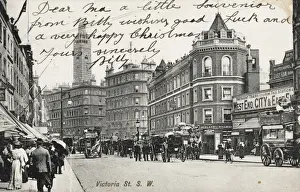 Dear Ma a little Souvenir
from Billy wishing good Luck and
a very happy Christmas
Yours sincerely
Billy
WEST END, CITY &
Victoria St. S. W.